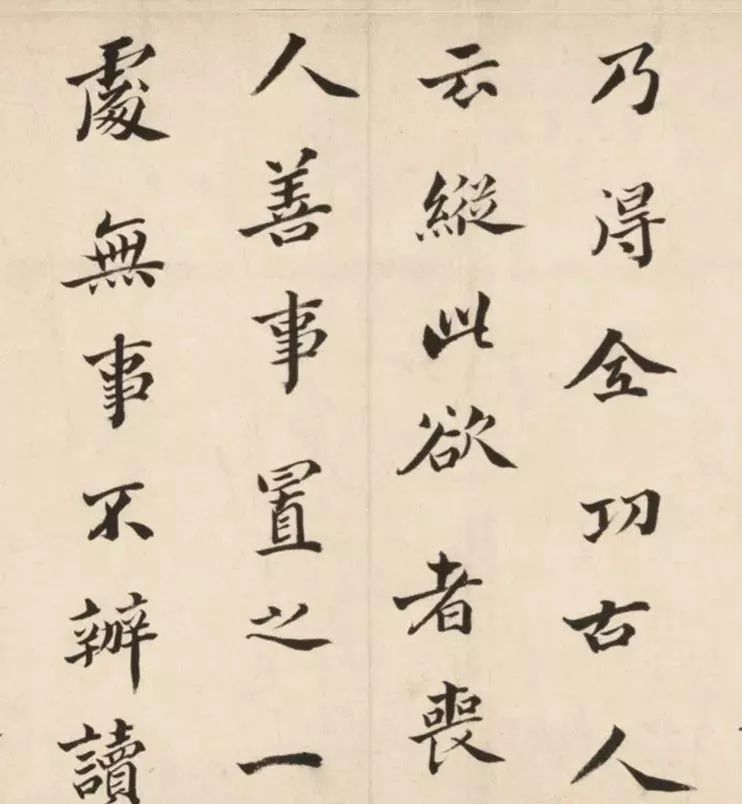 乃得全功古人
云縦此欲者喪
人善事置之一
處無事不辦讀